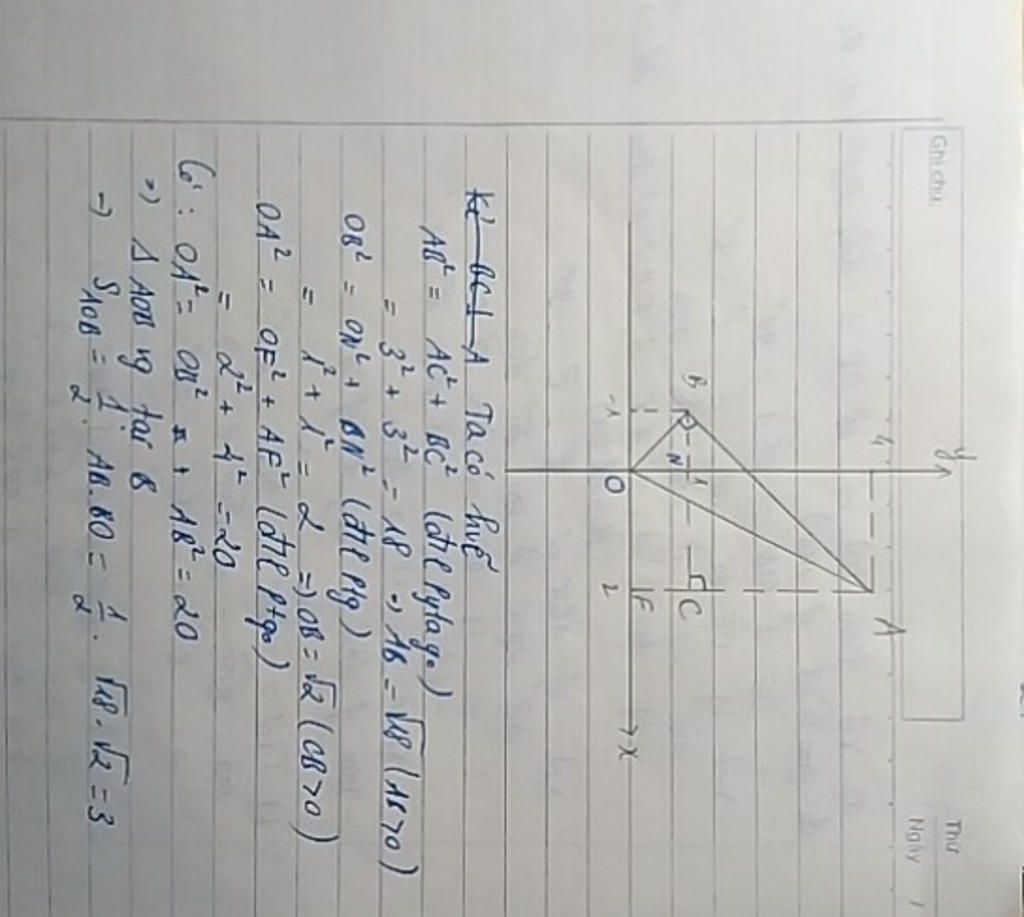 Ghi chú:
Thứ
Ngày /
y
4
A
B
N
1
C
-1
O
2
F
x
Kẻ BC ⊥ A Ta có hvẽ
AB² = AC² + BC² (đlí Pytago)
= 3² + 3² = 18 => AB = √18 (AB>0)
OB² = ON² + BN² (đlí Ptg)
= 1² + 1² = 2 => OB = √2 (OB>0)
OA² = OF² + AF² (đlí Ptgo)
= 2² + 4² = 20
Có: OA² = OB² + AB² = 20
=> Δ AOB vg tại B
=> S AOB = 1/2 . AB.BO = 1/2 . √18.√2 = 3